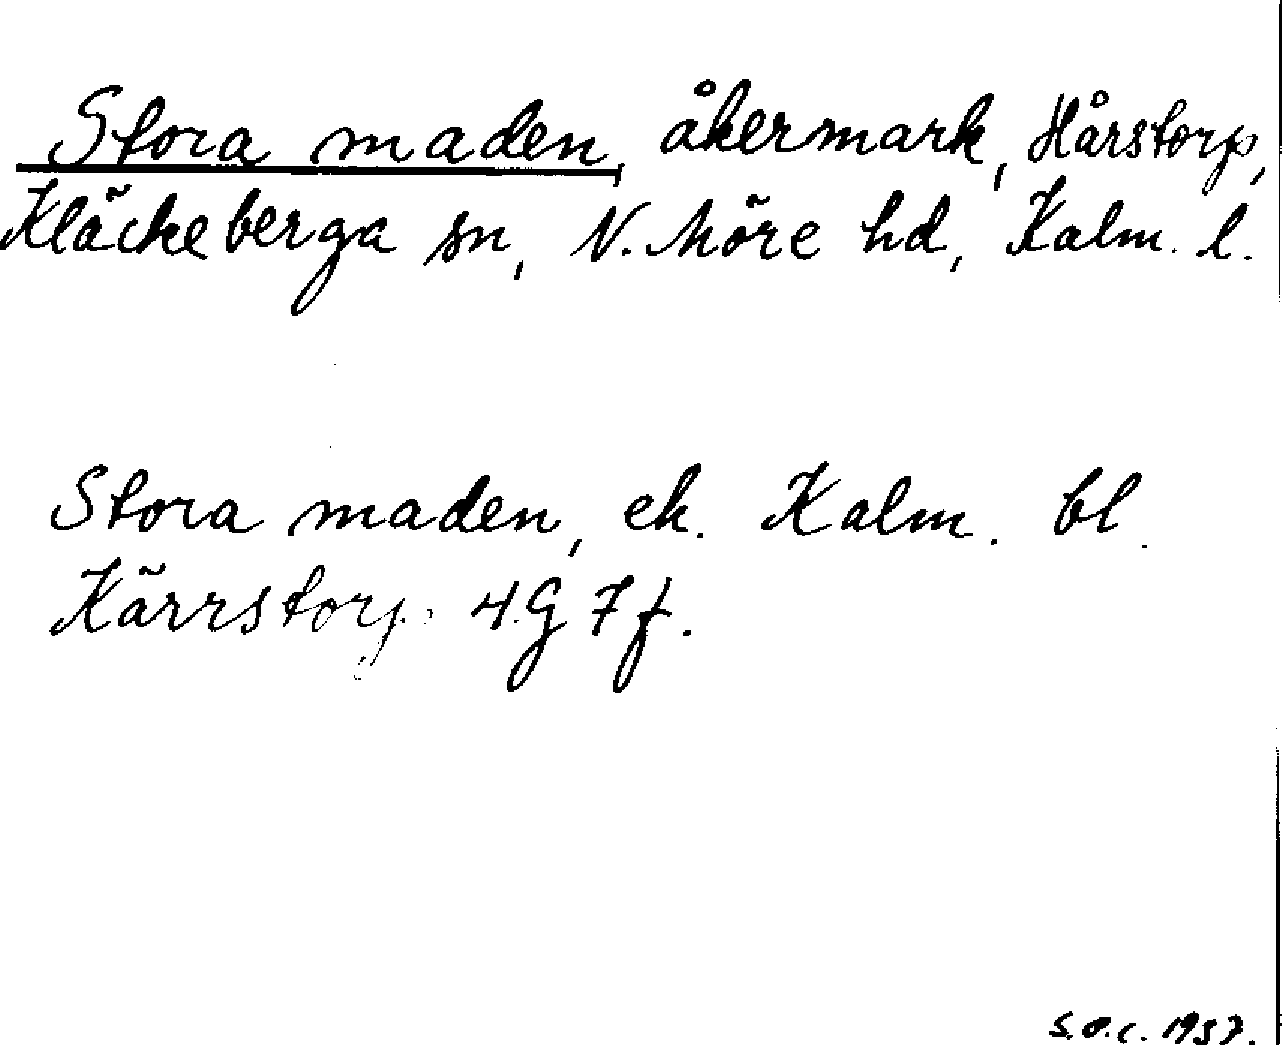 Stora maden, åkermark, Hårstorp,
Kläckeberga sn, N. Möre hd, Kalm. l.
Stora maden, ek. Kalm. bl.
Kärrstorp 4 G 7 f.
S.O.C. 1957.